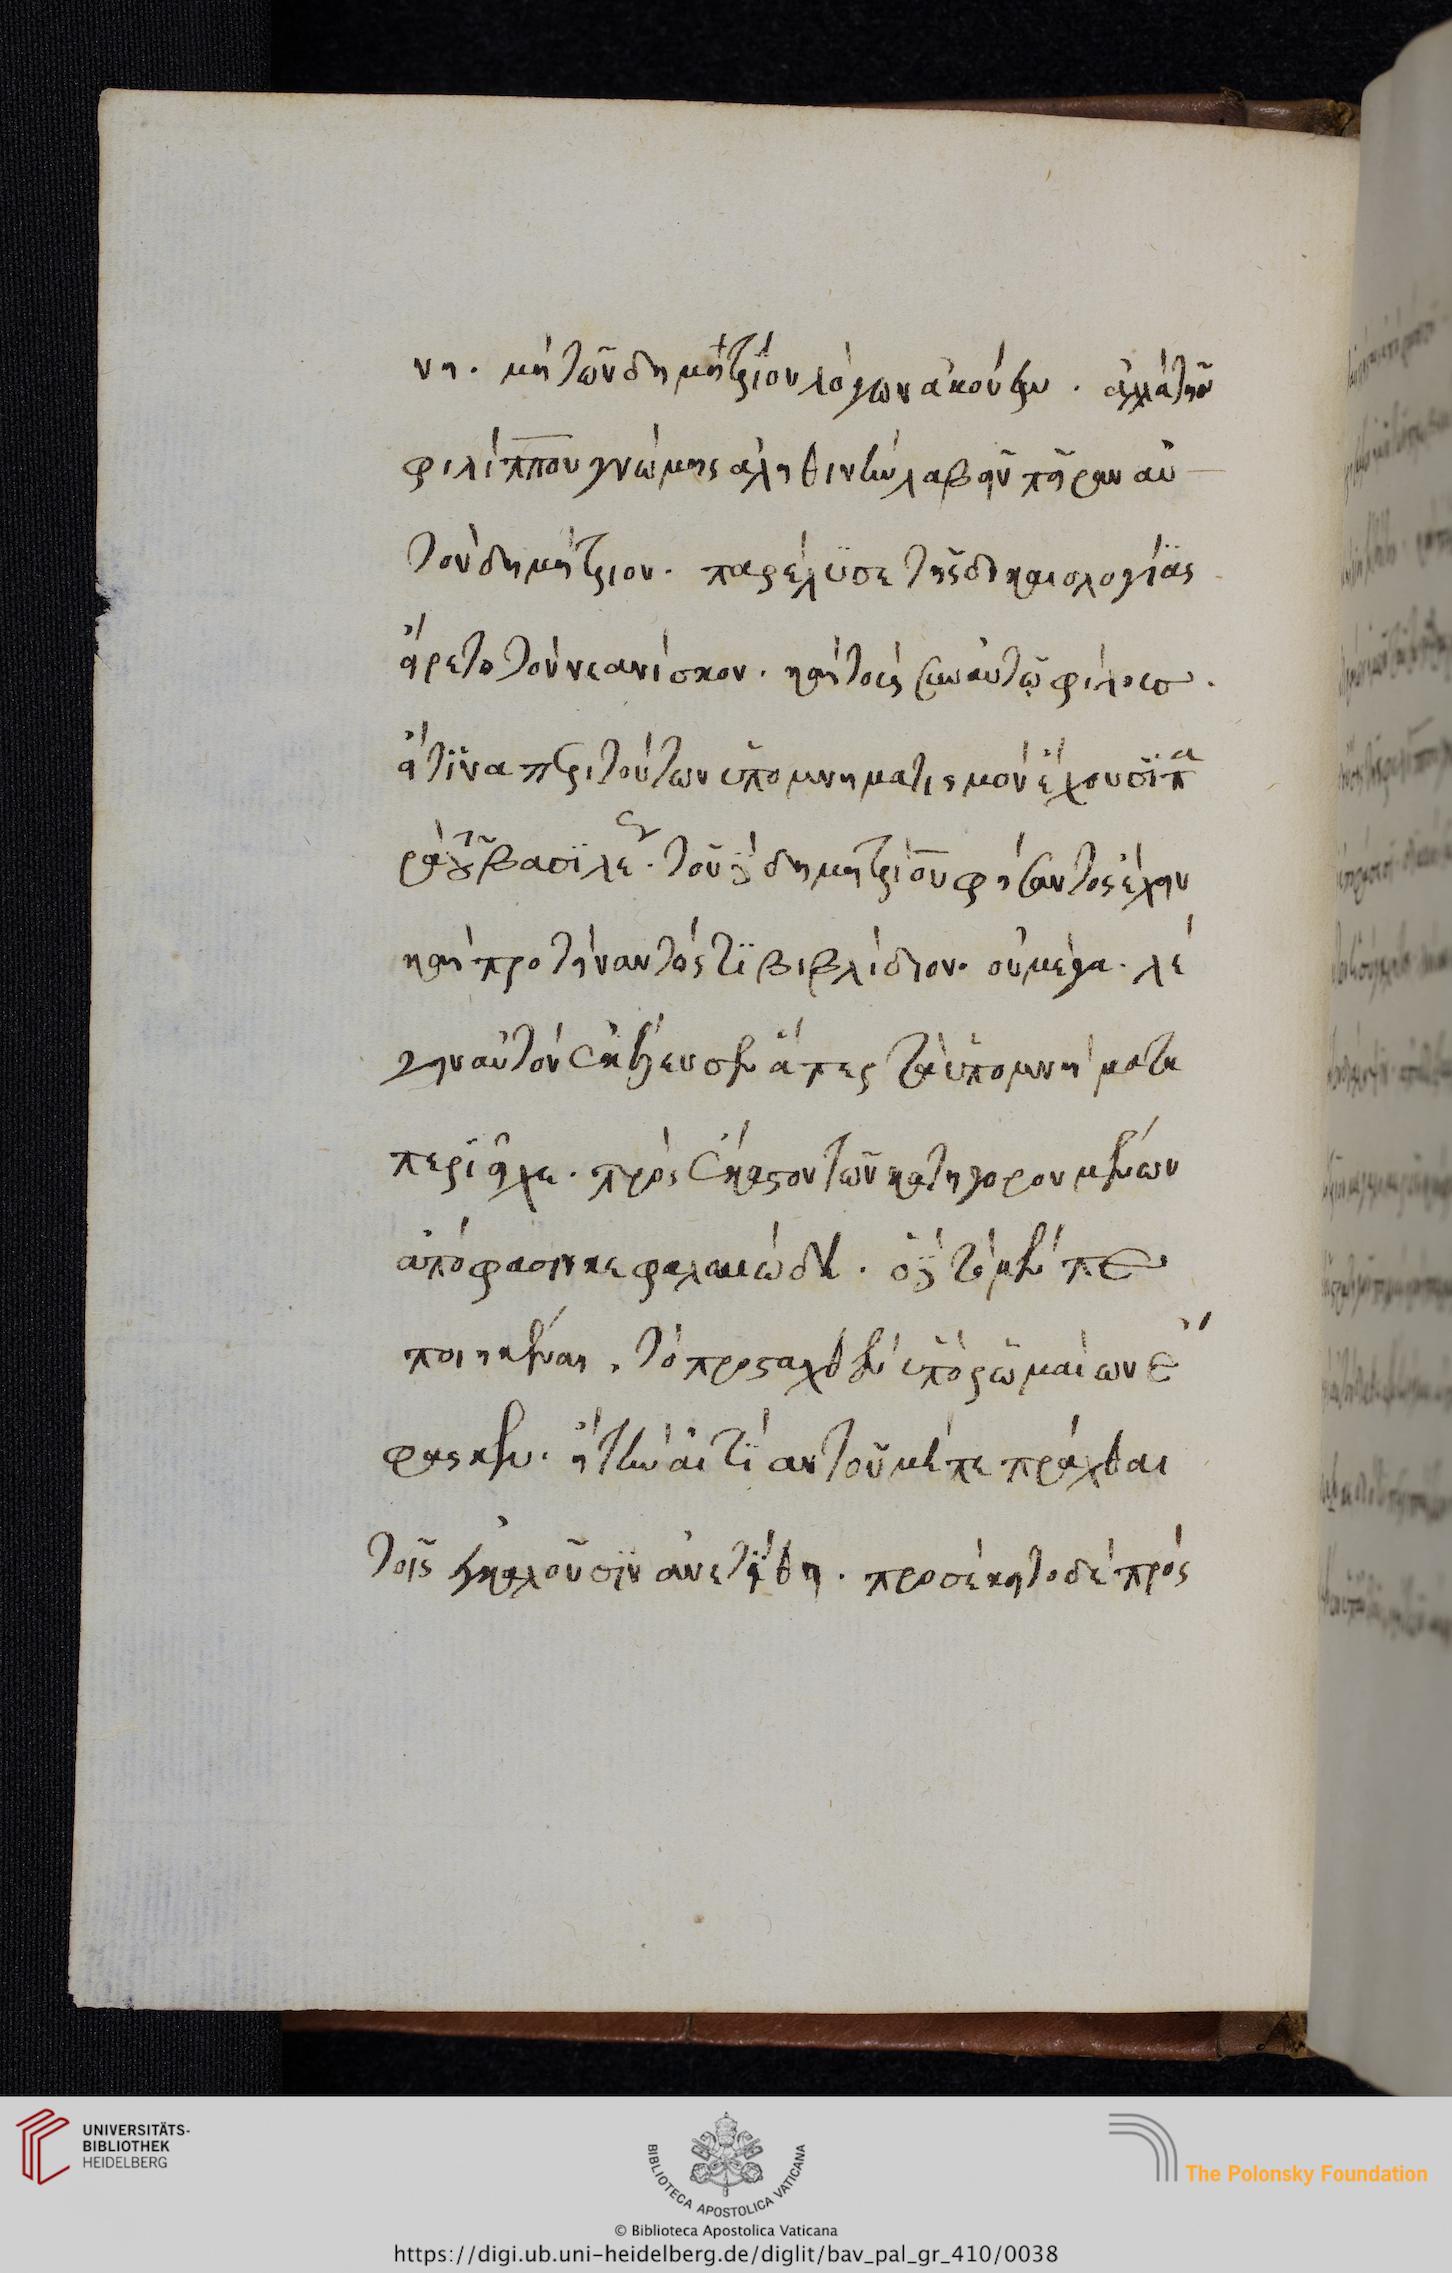 νη. μὴ τῶν δημητρίου λόγων ἀκούειν. ἀλλὰ τῆς
φιλίππου γνώμης ἀληθινὴν λαβεῖν πεῖραν αὐ
τὸν δημήτριον. παρέλϋσε τῆς δικαιολογίας
ἤρετο τὸν νεανίσκον. καὶ τοὺς σὺν αὐτῷ φίλους.
εἴ τϊνα περὶ τούτων ὑπομνηματισμὸν ἔχουσϊ πα
ρὰ τοῦ βασϊλέως. τοῦ δὲ δημητρίου φήσαντος ἔχειν
καὶ προτείναντός τϊ βιβλίδιον. οὐ μέγα. λέ
γειν αὐτὸν ἐκέλευσεν ἅπερ τὰ ὑπομνήματα
περιεῖχε. πρὸς ἕκαστον τῶν κατηγορουμένων
ἀπόφασιν κεφαλαιώδη. ὃς δὲ τὸ μὲν πε
ποιηκέναι, τὸ προσταχθὲν ὑπὸ ῥωμαίων ἔ
φασκεν. ἢ τὴν αἰτίαν τοῦ μὴ πεπρᾶχθαι
τοῖς ἐγκαλοῦσϊν ἀνετίθει. προσέκειτο δὲ πρὸς
UNIVERSITÄTS-
BIBLIOTHEK
HEIDELBERG
BIBLIOTECA APOSTOLICA VATICANA
The Polonsky Foundation
© Biblioteca Apostolica Vaticana
https://digi.ub.uni-heidelberg.de/diglit/bav_pal_gr_410/0038